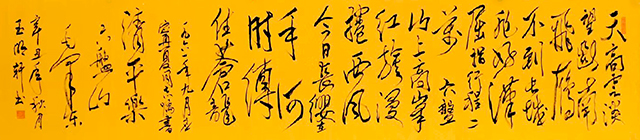 天高云淡
望断南
飞雁
不到长城
非好汉
屈指行程二
万 六盘
山上高峰
红旗漫
卷西风
今日长缨在
手何
时缚
住苍龙
一九六一年九月应
宁夏同志嘱书
清平乐
六盘山
毛泽东
辛丑年秋月
玉明轩书